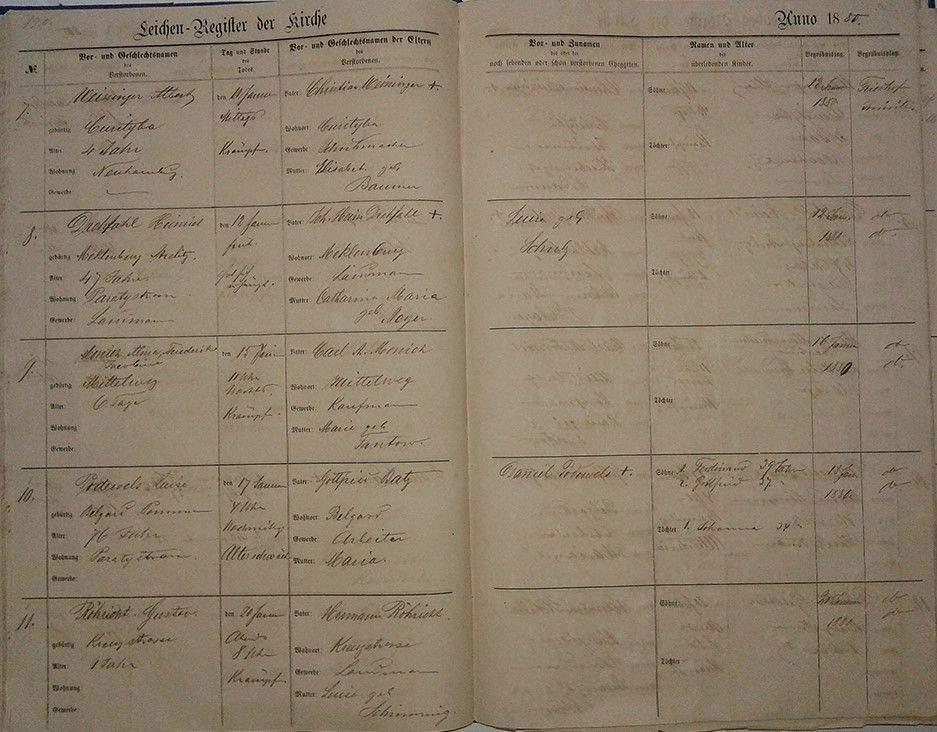 190.
Leichen-Register der Kirche
Anno 1880.
№
Vor- und Geschlechtsnamen
des
Verstorbenen.
Tag und Stunde
des
Todes
Vor- und Geschlechtsnamen der Eltern
des
Verstorbenen.
Vor- und Zunamen
des oder der
noch lebenden oder schon verstorbenen Ehegatten.
Namen und Alter
der
überlebenden Kinder.
Begräbnißtag.
Begräbnißplatz.
7.
Meisinger Albert
gebürtig Curityba
Alter: 4 Jahr
Wohnung Neuhamburg.
Gewerbe:
den 10 Januar
Mittags
Krämpfe.
Vater: Christian Meisinger +.
Wohnort: Curityba
Gewerbe: Schuhmacher
Elisabet geb
Baumer
Söhne:
Töchter:
12 Januar
1880
Friedhof
8.
Dachfahl Heinrich
gebürtig Mecklenburg Strelitz.
Alter: 47 Jahr
Wohnung Paratystrasse
Gewerbe: Landmann
12 Januar
früh
Vater: Dachfahl +.
Wohnort: Mecklenburg
Gewerbe: Landmann
Mutter: Catharina Maria
geb
Meyer
geb
Schulz
Söhne:
Töchter:
13 Jan
1880.
do
do.
9.
Monich Alma Friederike
gebürtig Mittelweg
Alter: 6 Tage
Wohnung
Gewerbe:
den 15 Jan
11 Uhr
Nachts.
Krämpfe.
Vater: Carl A. Monich
Wohnort: Mittelweg
Gewerbe: Kaufmann
Mutter: Marie geb
Tantow.
Söhne:
Töchter:
16 Januar
1880
do
do.
10.
Podewels Luise
gebürtig Belgard Pommern
Alter: 76 Jahr
Wohnung: Paratystrasse.
Gewerbe:
den 17 Januar
4 Uhr
Nachmittag
Altersschwäche
Vater: Gottfried Batz
Wohnort: Belgard
Gewerbe: Arbeiter
Mutter: Maria.
Daniel Podewels +.
Söhne: 1. Ferdinand 39 Jahr
2. Gottfried 37 "
Töchter 1. Johanna 34 "
18 Jan
1880.
do
do
11.
Röhricht Gustav
gebürtig Kreuzstrasse
Alter: 1 Jahr
Wohnung
Gewerbe:
den 20 Januar
Abends
8 Uhr
Krämpfe
Vater: Hermann Röhricht.
Wohnort: Kreuzstrasse
Gewerbe: Landmann
Mutter: Luise geb
Schimming
Söhne:
Töchter
Januar
1880.
do
do